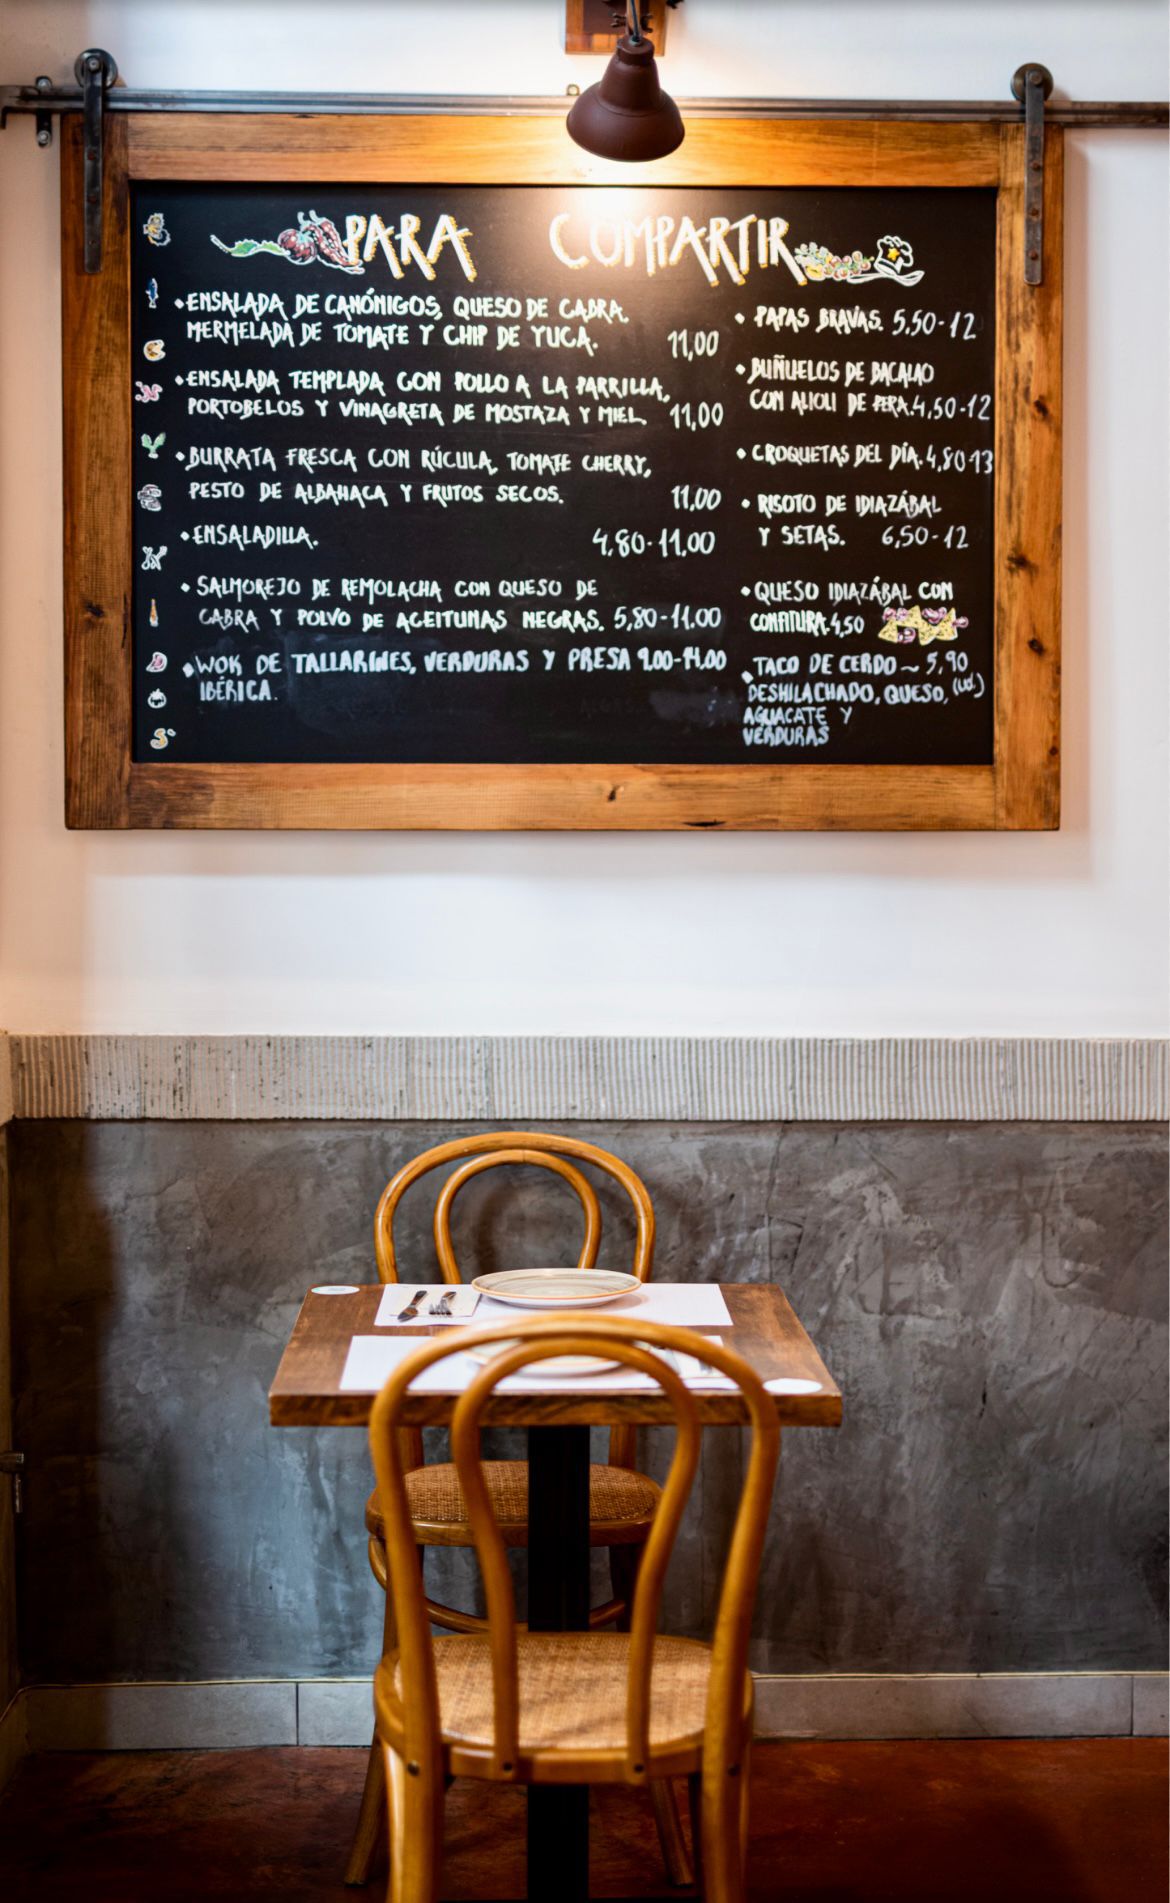 PARA COMPARTIR
• ENSALADA DE CANÓNIGOS, QUESO DE CABRA,
MERMELADA DE TOMATE Y CHIP DE YUCA. 11,00
• ENSALADA TEMPLADA CON POLLO A LA PARRILLA,
PORTOBELOS Y VINAGRETA DE MOSTAZA Y MIEL. 11,00
• BURRATA FRESCA CON RÚCULA, TOMATE CHERRY,
PESTO DE ALBAHACA Y FRUTOS SECOS. 11,00
• ENSALADILLA. 4,80-11,00
• SALMOREJO DE REMOLACHA CON QUESO DE
CABRA Y POLVO DE ACEITUNAS NEGRAS. 5,80-11.00
• WOK DE TALLARINES, VERDURAS Y PRESA 9.00-14.00
IBÉRICA.
• PAPAS BRAVAS. 5,50-12
• BUÑUELOS DE BACALAO
CON ALIOLI DE PERA. 4,50-12
• CROQUETAS DEL DÍA. 4,80-13
• RISOTO DE IDIAZÁBAL
Y SETAS. 6,50-12
• QUESO IDIAZÁBAL CON
CONFITURA. 4,50
• TACO DE CERDO ~ 5,90
DESHILACHADO, QUESO, (ud.)
AGUACATE Y
VERDURAS